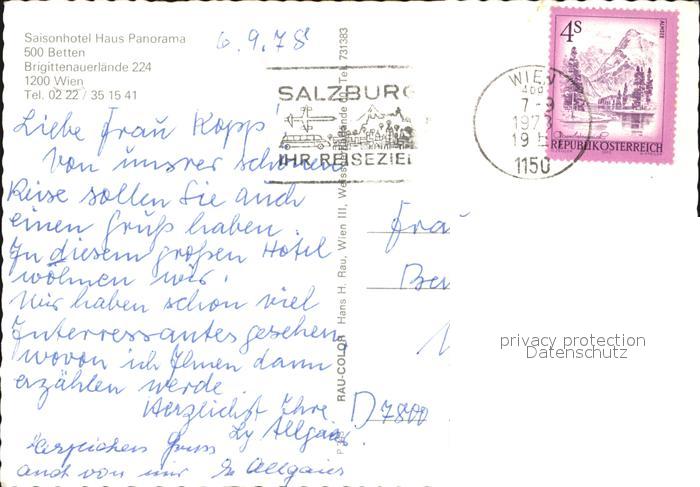 Saisonhotel Haus Panorama
500 Betten
Brigittenauerlände 224
1200 Wien
Tel. 02 22 / 35 15 41
6.9.78
SALZBURG
IHR REISEZIEL
WIEN
7-9
1150
4s
ALMSEE
REPUBLIK ÖSTERREICH
Liebe Frau Kopp!
Von unsrer schönen
Reise sollen Sie auch
einen Gruß haben.
In diesem großen Hotel
wohnen wir.
Wir haben schon viel
Interressantes gesehen,
wovon ich Ihnen dann
erzählen werde
Herzlichst Ihre
Ly Allgaier
Herzlichen Gruss
auch von mir Allgaier
RAU-COLOR Hans H. Rau, Wien III, Tel. 731383
Frau
D 7800
privacy protection
Datenschutz